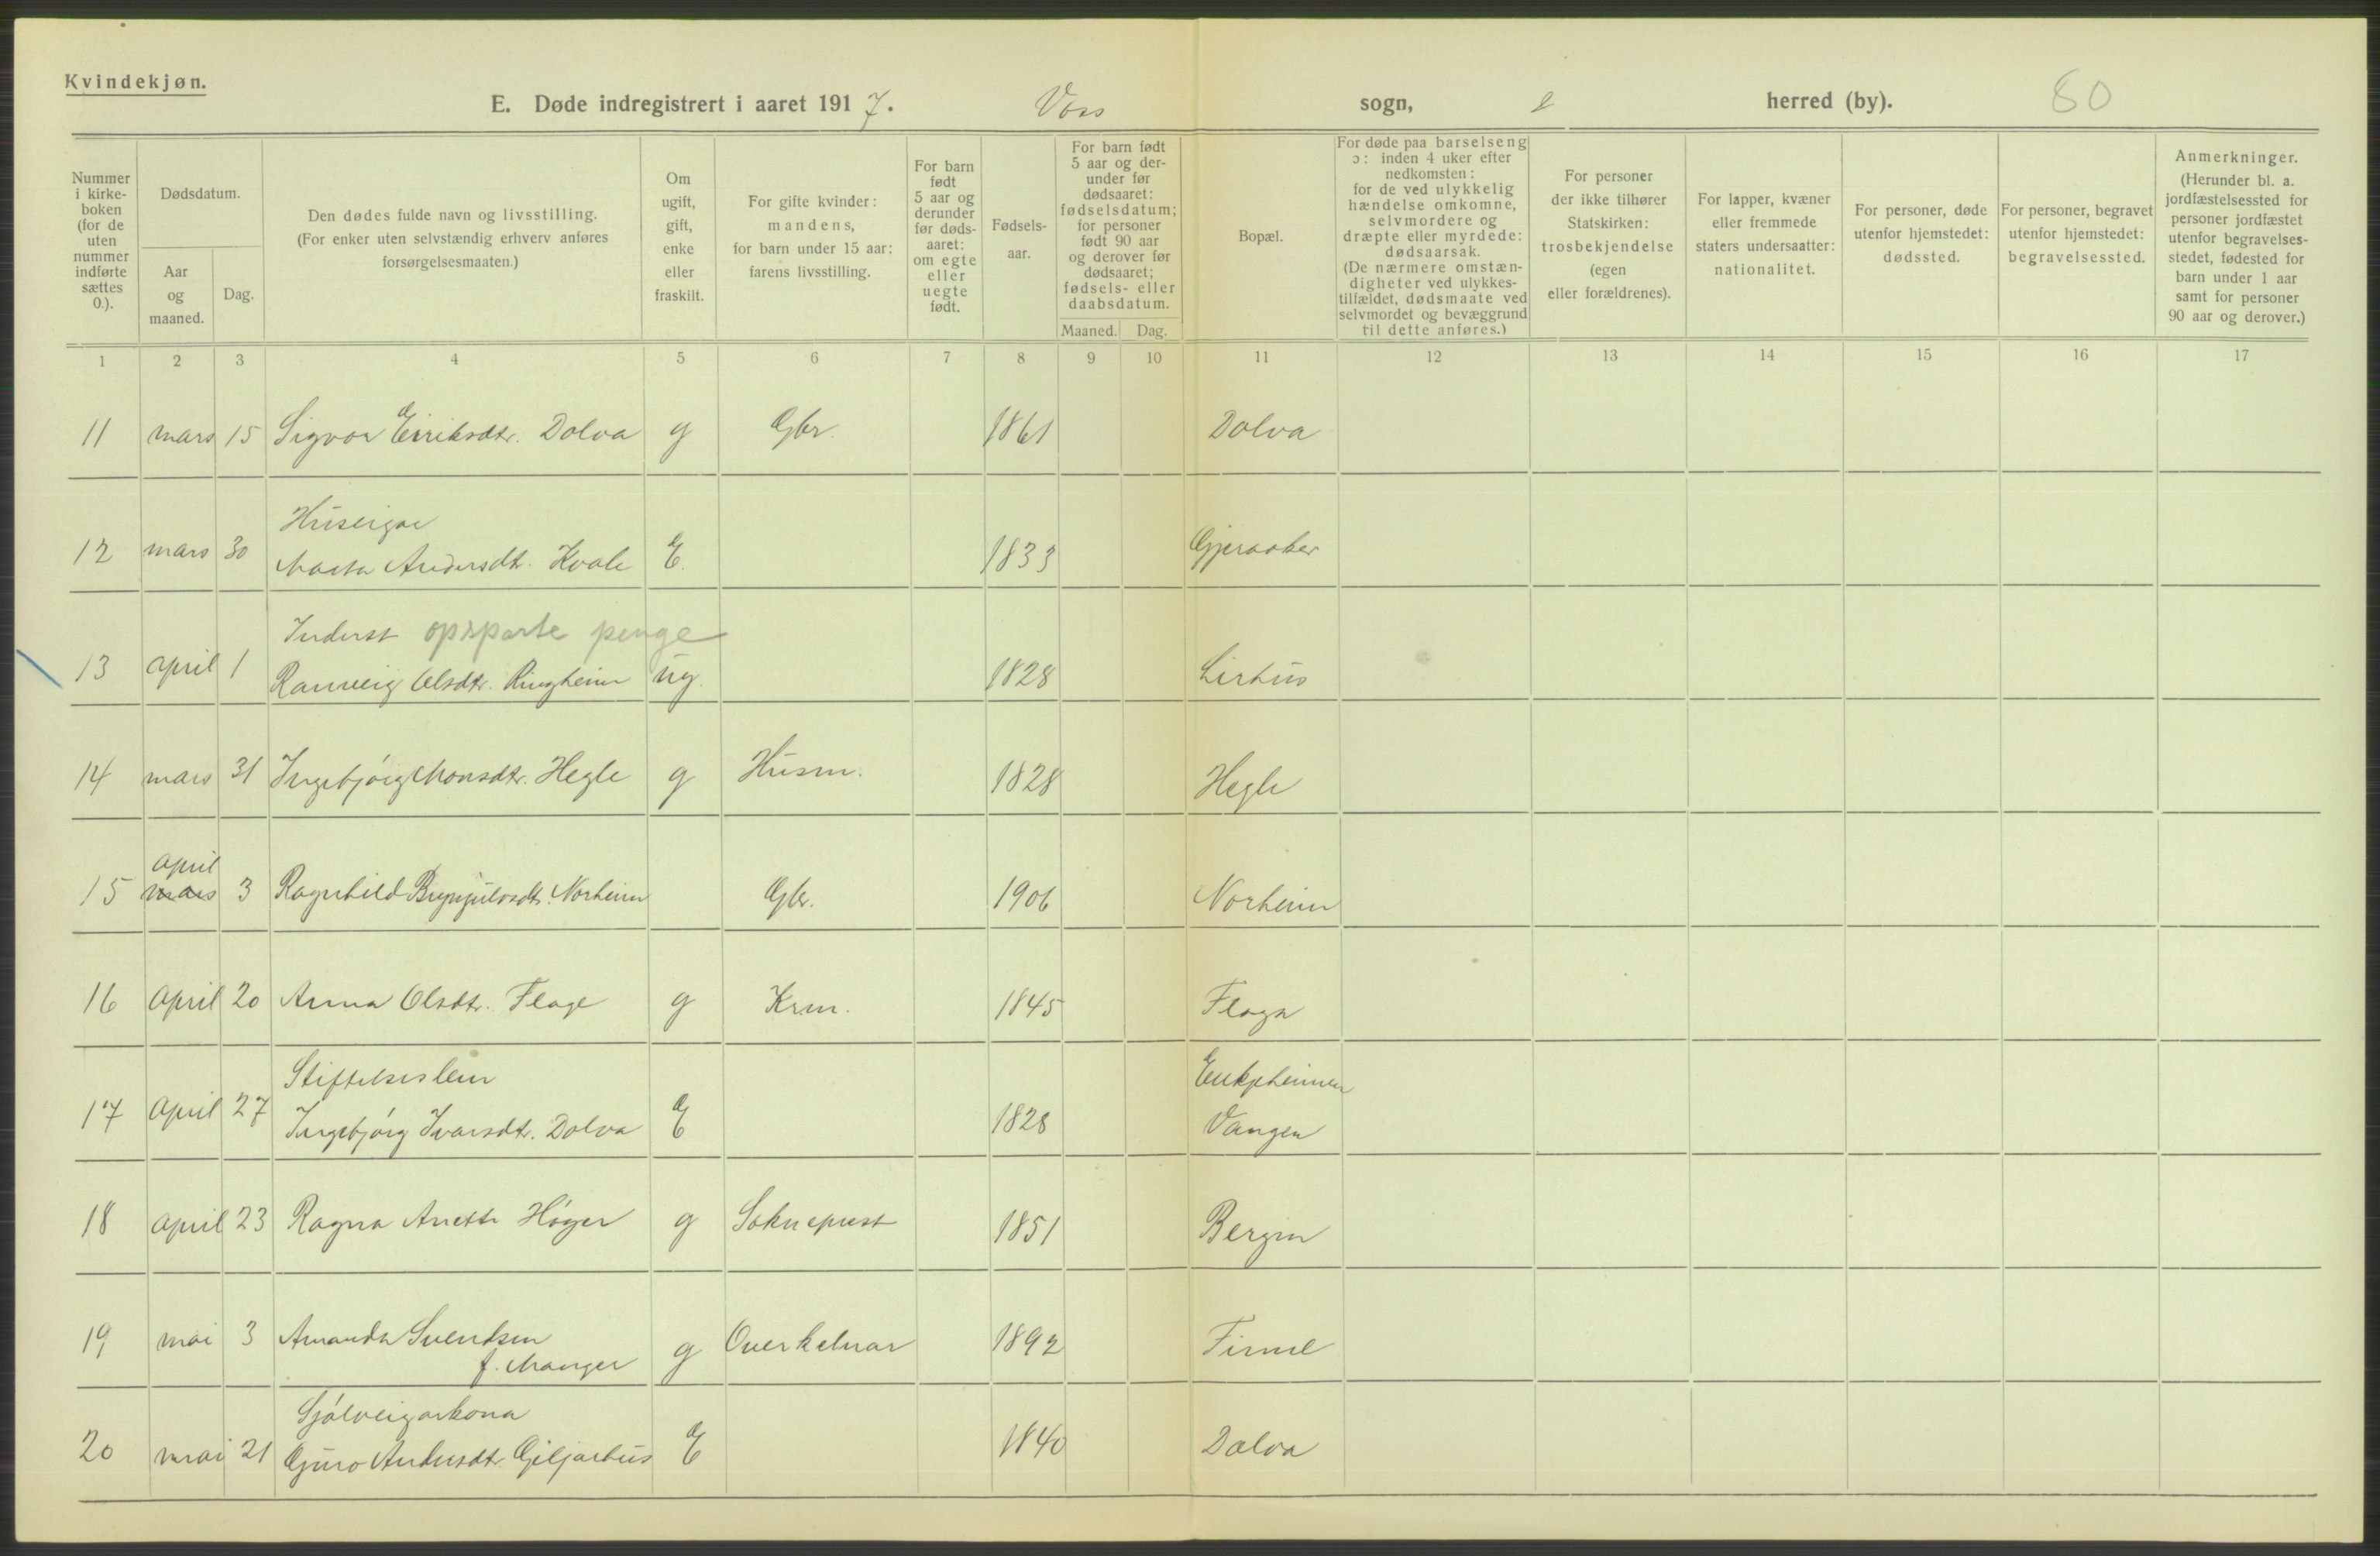 Kvindekjøn.
E. Døde indregistrert i aaret 1917. Voss sogn, herred (by). 80
Nummer i kirkeboken (for de uten nummer indførte sættes 0.).
Dødsdatum.
Aar og maaned.
Dag.
Den dødes fulde navn og livsstilling. (For enker uten selvstændig erhverv anføres forsørgelsesmaaten.)
Om ugift, gift, enke eller fraskilt.
For gifte kvinder: mandens, for barn under 15 aar: farens livsstilling.
For barn født 5 aar og derunder før dødsaaret: om egte eller uegte født.
Fødselsaar.
For barn født 5 aar og derunder før dødsaaret: fødselsdatum; for personer født 90 aar og derover før dødsaaret; fødsels- eller daabsdatum.
Maaned. Dag.
Bopæl.
For døde paa barselseng ɔ: inden 4 uker efter nedkomsten: for de ved ulykkelig hændelse omkomne, selvmordere og dræpte eller myrdede: dødsaarsak. (De nærmere omstændigheter ved ulykkestilfældet, dødsmaate ved selvmordet og bevæggrund til dette anføres.)
For personer der ikke tilhører Statskirken: trosbekjendelse (egen eller forældrenes).
For lapper, kvæner eller fremmede staters undersaatter: nationalitet.
For personer, døde utenfor hjemstedet: dødssted.
For personer, begravet utenfor hjemstedet: begravelsessted.
Anmerkninger. (Herunder bl. a. jordfæstelsessted for personer jordfæstet utenfor begravelsesstedet, fødested for barn under 1 aar samt for personer 90 aar og derover.)
1 2 3 4 5 6 7 8 9 10 11 12 13 14 15 16 17
11 mars 15 Sigvor Eiriksdtr. Dolva g Gbr. 1861 Dolva
Huseigar
12 mars 30 Marta Andersdtr. Kvale E. 1833 Gjeraaker
Inderst opsparte penge
13 april 1 Ranveig Olsdtr. Ringheim ug. 1828 Lirhus
14 mars 31 Ingebjørg Monsdtr. Hegle g Husm. 1828 Hegle
april
15 mars 3 Ragnhild Brynjulvsdtr. Norheim Gbr. 1906 Norheim
16 april 20 Anna Olsdtr. Flage g Krm. 1845 Flaga
Stiftelseslem Enkjeheimen
17 april 27 Ingebjørg Ivarsdtr. Dolva E 1828 Vangen
18 april 23 Ragna Anette Høyer g Sokneprest 1851 Bergen
19 mai 3 Amanda Svendsen g Overkelnar 1892 Finse
f. Manger
Sjølveigarkona
20 mai 21 Guro Andersdtr. Giljarhus E 1840 Dolva